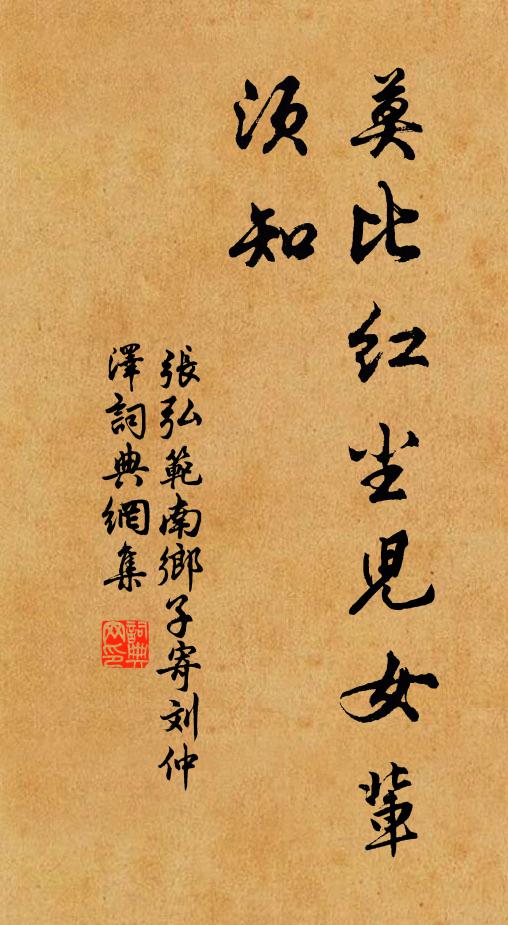 莫比红尘児女輩
须知
張弘範南鄉子寄刘仲
澤詞典網集
詞典
网印